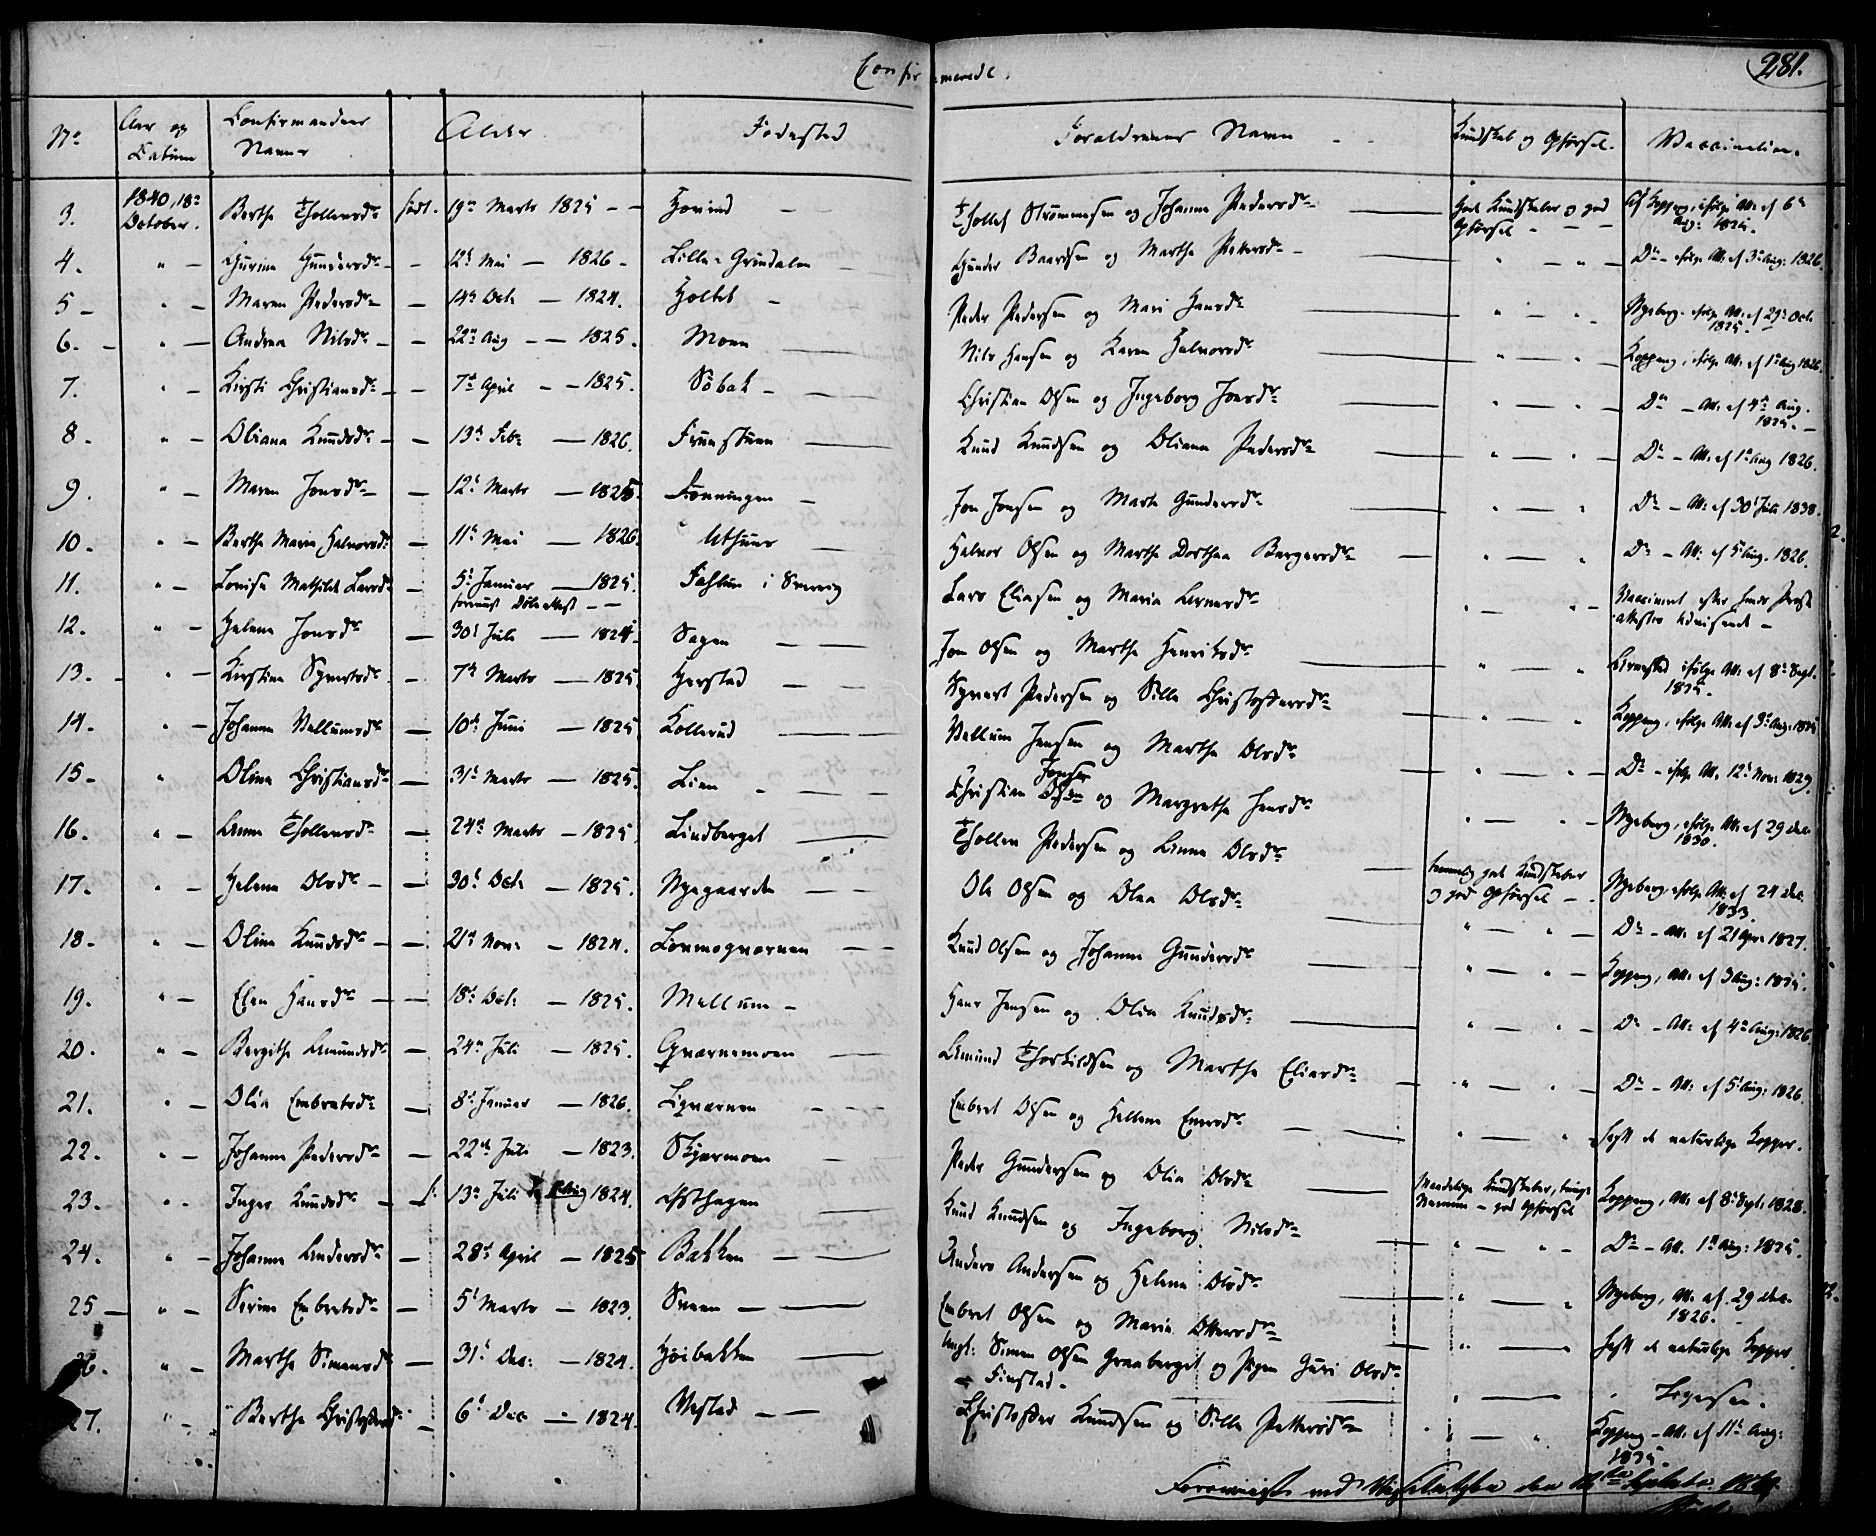 Confirmerede.
281.
No Aar og Datum Confirmandens Navn Alder Fødested Forældrenes Navn Kundskab og Opførsel. Vaccination.
3. 1840, 18de October. Berthe Thollensdr født. 19de Marts 1825 Hovind Thollef Strømmesen og Johanne Pedersdr Gode Kundskaber og god Opførsel Af Koppang, ifølge Att: af 6te Aug: 1825.
4. " Gurine Gundersdr 12te Mai 1826 Lille-Grindalen Gunder Baardsen og Marthe Pettersdr " " Do ifølge Att: af 3die Aug: 1826.
5 " Maren Pedersdr 14de Oct: 1824. Holtet Peder Pedersen og Mari Hansdr " " Nyeborg, ifølge Att: af 29de Oct: 1825.
6. " Andrea Nilsdr 22de Aug 1825. Moen Nils Hansen og Karen Halvorsdr " " Koppang, ifølge Att: af 1ste Aug 1826.
7. " Kirsti Christiansdr 7de April 1825. Søbak Christian Olsen og Ingeborg Jonsdr " " Do Att: af 4de Aug. 1825.
8. " Oliana Knudsdr 13de Feb: 1826. Fruestuen Knud Knudsen og Oliana Pedersdr " " Do Att: af 1ste Aug 1826.
9. " Maren Jonsdr 12te Marts 1825. Fonningen Jon Jonsen og Marte Gundersdr " " Do Att: af 30te Juli 1838.
10. " Berthe Marie Halvorsdr 11te Mai 1826. Uthuus Halvor Olsen og Marthe Dorthea Bergersdr " " Do Att: af 5te Aug. 1826.
11. " Lovise Mathilde Larsdr 5te Januar 1825. forevist Døbeattest Fahlun i Sverrig Lars Eliasen og Maria " " Vaccineret efter hendes Præste attestes Udvisende
12. " Helene Jonsdr 30te Juli 1824. Sagen Jon Olsen og Marthe Henriksdr " "
13. " Kirstine Syvertsdr 7de Marts 1825. Herstad Syvert Pedersen og Sille Christoffersdr " ifølge Att: af 8de Sept. 1825.
14. " Johanne Vellumsdr 10de Juni 1825 Kollerud Vellum Jensen og Marthe Olsdr " Koppang, ifølge Att: af 3die Aug: 1825
15. " Oline Christiansdr 31te Marts 1825. Lien Christian Jonsen og Margrethe Jensdr " " Do ifølge Att. 12te Nov: 1829.
16. " Anne Thollensdr 24de Marts 1825 Lindberget Thollen Pedersen og Anne Olsdr " " Nyeborg, ifølge Att: af 29 Dec. 1830.
17. " Helene Olsdr 30te Oct: 1825. Nyegaarden Ole Olsen og Olea Olsdr temmelig gode Kundskaber og god Opførsel Nyeborg, ifølge Att: af 24 Dec. 1833.
18. " Oline Knudsdr 21de Nov: 1824. Lommoqværnen Knud Olsen og Johanne Gundersdr " " Do Att: af 21 Apr: 1827.
19. " Elen Hansdr 18de Oct: 1825. Mellum Hans Jensen og Olia Knudsdr " " Koppang, Att: af 3 Aug: 1825.
20. " Bergithe Amundsdr 24de Juli 1825. Qværnemoen Amund Thorkildsen og Marthe Eliasdr " " Do Att: af 4de Aug: 1826.
21. " Olia Embretsdr 8de Januar 1826. Liqværnen Embret Olsen og Hellene Emersdr " " Do Att: af 5te Aug: 1826.
22. " Johanne Pedersdr 22de Juli 1823. Skjærmoen Peder Gundersen og Olia Olsdr " " havt de naturlige Kopper.
23. " Inger Knudsdr 13de Juli 1824. Østhagen Knud Knudsen og Ingeborg Nilsdr Maadelige Kundskaber, tungt Nemme god Opførsel Koppang, Att: af 8de Sept: 1828.
24. " Johanne Andersdr 28de April 1825 Bakken Anders Andersen og Helene Olsdr " " Do Att. 1ste Aug: 1825.
25 " Serine Embretsdr 5te Marts 1823. Sveen Embret Olsen og Maria Olsdr " " Nyeborg, Att: af 29 Dec. 1826.
26. " Marthe Simensdr 31te Dec: 1824. Høibakken Ungk: Simen Olsen Graaberget og Pigen Guri Olsdr Finstad " havt de naturlige Kopper.
27. " Berthe Christoffersdr 6te Dec 1824. Vestad Christoffer Knudsen og Sille Pettersdr " " Koppang Att: af 11te Aug: 1825.
Foreviist ved Visitatsen den September